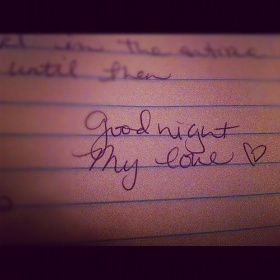 in the entire
until then
Goodnight
My love ♡